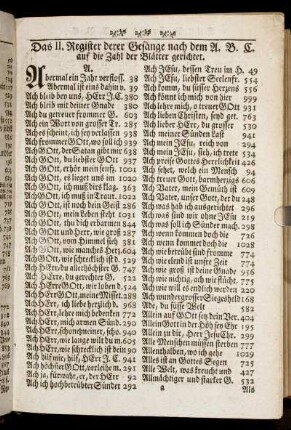 Das II. Register derer Gesänge nach dem A. B. C.
auf die Zahl der Blätter gerichtet.
A.
Abermal ein Jahr verfloss. 38
Abermal ist eins dahin v. 39
Ach bleib bey uns, HErr J. C. 380
Ach bleib mit deiner Gnade 380
Ach du getreuer frommer G. 603
Ach ein Wort von grosser Tr. 285
Ach frommer GOtt, wo soll ich 939
Ach GOtt, der Satan plagt mich 638
Ach GOtt, du liebster GOtt 937
Ach GOtt, erhör mein seufz. 1001
Ach GOtt, es liegen uns an 1021
Ach GOtt, ich muß dirs klag. 363
Ach GOtt, ich muß in Traur. 1022
Ach GOtt, ist noch dein Geist 286
Ach GOtt, mein Leben steht 1031
Ach GOtt, thu dich erbarmen 844
Ach GOtt und HErr, wie groß 287
Ach GOtt, vom Himmel sieh 381
Ach GOtt, wie manches Herz. 604
Ach GOtt, wie schrecklich ist 
Ach HErr du allerhöchster G. 747
Ach HErr, du gerechter G. 522
Ach HErre GOtt, wir loben d. 
Ach HErr GOtt, meine Misseth. 288
Ach HErr, ich liebe herzlich d. 968
Ach HErr, lehre mich bedenken 772
Ach HErr, mich armen Sünd. 290
Ach HErr, schone meiner, scho. 940
Ach HErr, wie lange wilt du m. 605
Ach HErr, wie schrecklich ist 290
Ach hilf mir, hilf, HErr J. C. 941
Ach höchster GOtt, verleihe m. 291
Ach ja, fürwahr, er, der HErr 92
Ach ich hochbetrübter Sünder 292
Ach JEsu, dessen Treu im H. 49
Ach JEsu, liebster Seelenfr. 554
Ach komm, du süsser Herzens 556
Ach könnt ich mich von hier 999
Ach lehre mich, o treuer GOtt 931
Ach lieben Christen, seyd get. 763
Ach lieber HErr, du grosser 530
Ach meiner Sünden Last 941
Ach mein JEsu, reich von 294
Ach mein JEsu, sieh ich trete 523
Ach preise GOttes Herrlichkeit 426
Ach sehet, welch ein Mensch 94
Ach treuer GOtt, barmherziges 606
Ach Vater, mein Gemüth ist 609
Ach Vater, unser GOtt, der du 382
Ach was hab ich ausgerichtet 296
Ach was sind wir ohne JEsu 295
Ach was soll ich Sünder mach. 297
Ach wenn kommet doch die Z. 774
Ach wenn kommet doch die 1028
Ach wie betrübt sind fromme 777
Ach wie elend ist unser Zeit 774
Ach wie groß ist deine Gnade 955
Ach wie nichtig, ach wie flücht. 775
Ach wie will es endlich werden 300
Ach wundergrosser Siegesheld 168
Ade, du süsse Welt 582
Allein auf GOtt sey dein Ver. 404
Allein GOtt in der Höh sey Ehr 195
Allein zu dir, Herr JEsu Chr. 299
Alle Menschen müssen sterben 777
Allenthalben, wo ich gehe 1029
Alles ist an GOttes Segen 725
Alle Welt, was kreucht und 427
Allmächtiger und starker G. 532
a
Als